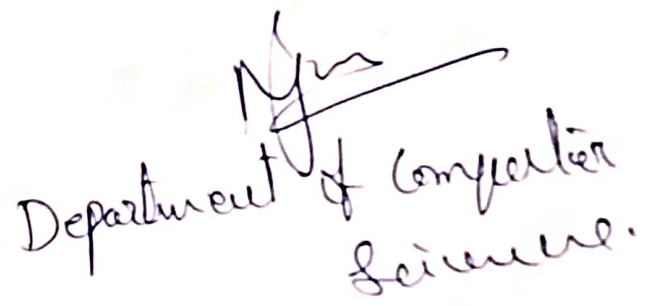 Department of Computer
Science.